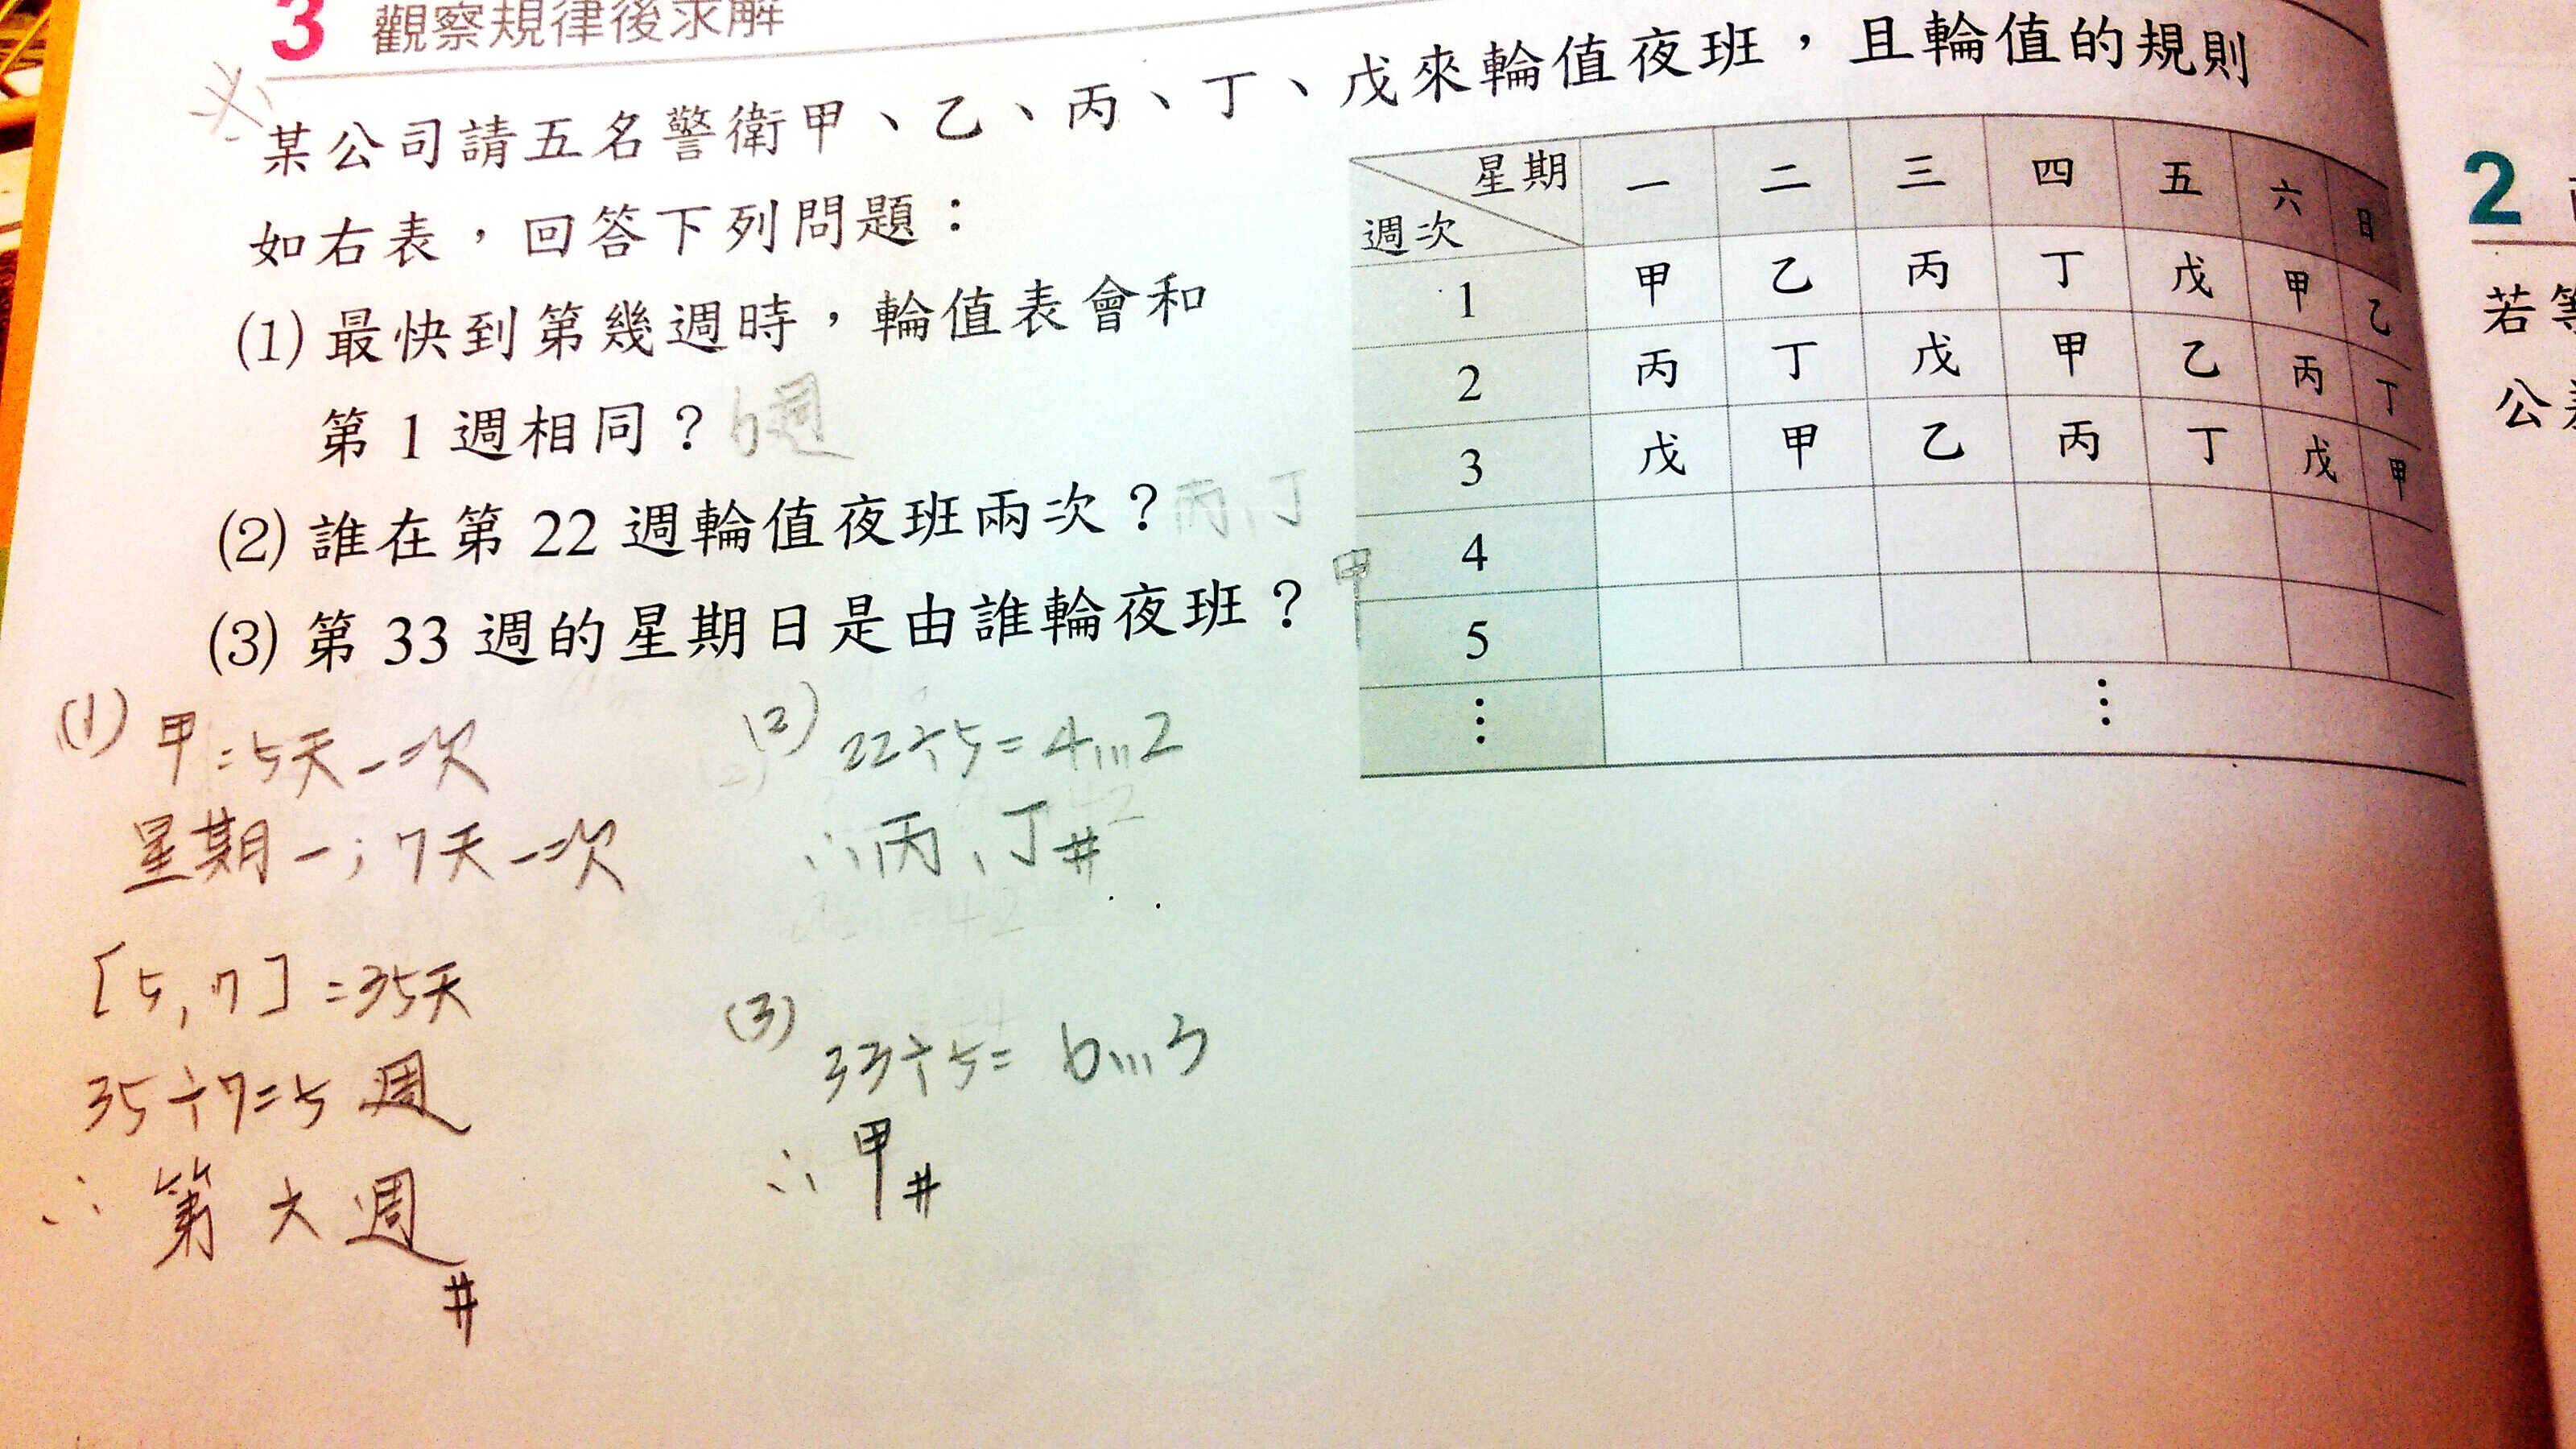 3 觀察規律後求解
某公司請五名警衛甲、乙、丙、丁、戊來輪值夜班，且輪值的規則
如右表，回答下列問題：
(1) 最快到第幾週時，輪值表會和
第 1 週相同？6週
(2) 誰在第 22 週輪值夜班兩次？丙、丁
(3) 第 33 週的星期日是由誰輪夜班？甲
星期 一 二 三 四 五 六 日
週次
1 甲 乙 丙 丁 戊 甲 乙
2 丙 丁 戊 甲 乙 丙 丁
3 戊 甲 乙 丙 丁 戊 甲
4
5
⋮ ⋮
(1) 甲：5天一次
星期一；7天一次
[5,7]=35天
35÷7=5週
∴第六週#
(2) 22÷5=4…2
∴丙、丁#
(3) 33÷5=6…3
∴甲#
2
若等